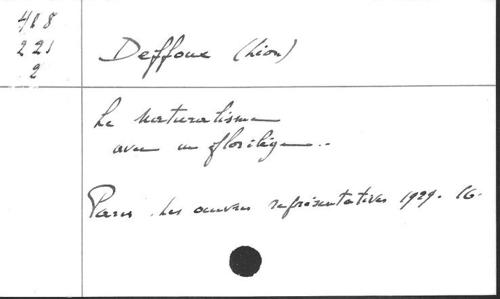 418
221
2
Deffoux (Léon)
Le Naturalisme
avec un florilège...
Paris. Les œuvres représentatives 1929. 16.